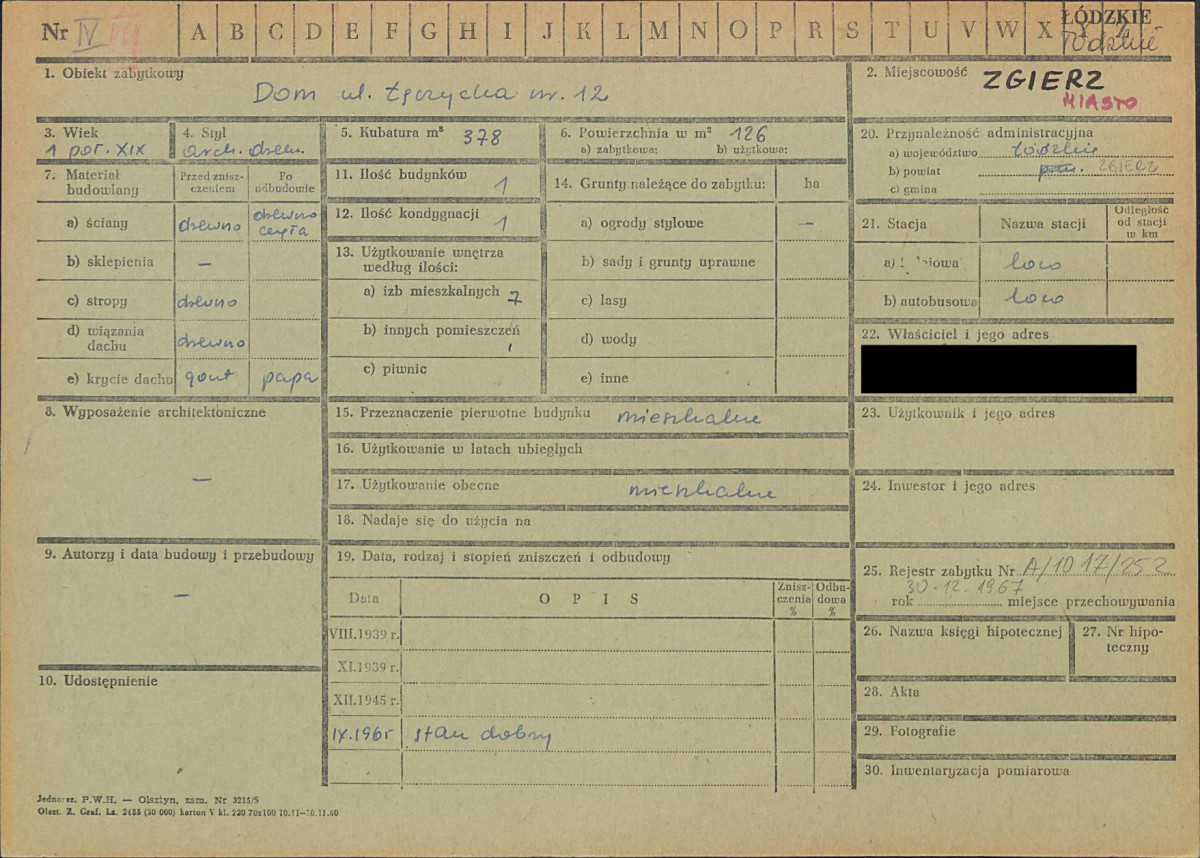 Nr IV III A B C D E F G H I J K L M N O P R S T U V W X Y Z ŁÓDZKIE
łódzkie
1. Obiekt zabytkowy
Dom ul. Łęczycka nr. 12
2. Miejscowość ZGIERZ
MIASTO
3. Wiek
1 poł. XIX
4. Styl
arch. drew.
5. Kubatura m³ 378
6. Powierzchnia w m² 126
a) zabytkowa: b) użytkowa:
20. Przynależność administracyjna
a) województwo łódzkie
b) powiat ZGIERZ
c) gmina
7. Materiał budowlany
Przed zniszczeniem
Po odbudowie
a) ściany drewno drewno cegła
b) sklepienia —
c) stropy drewno
d) wiązania dachu drewno
e) krycie dachu gont papa
11. Ilość budynków 1
12. Ilość kondygnacji 1
13. Użytkowanie wnętrza według ilości:
a) izb mieszkalnych 7
b) innych pomieszczeń
c) piwnic
14. Grunty należące do zabytku: ha
a) ogrody stylowe —
b) sady i grunty uprawne
c) lasy
d) wody
e) inne
21. Stacja Nazwa stacji Odległość od stacji w km
a) loco
b) autobusowa loco
22. Właściciel i jego adres
8. Wyposażenie architektoniczne
—
15. Przeznaczenie pierwotne budynku mieszkalne
16. Użytkowanie w latach ubiegłych
17. Użytkowanie obecne mieszkalne
18. Nadaje się do użycia na
23. Użytkownik i jego adres
24. Inwestor i jego adres
9. Autorzy i data budowy i przebudowy
—
10. Udostępnienie
19. Data, rodzaj i stopień zniszczeń i odbudowy
Data OPIS Zniszczenia % Odbudowa %
VIII.1939 r.
XI.1939 r.
XII.1945 r.
IX.1965 stan dobry
25. Rejestr zabytku Nr A/1017/252
30.12.1967
rok miejsce przechowywania
26. Nazwa księgi hipotecznej
27. Nr hipoteczny
28. Akta
29. Fotografie
30. Inwentaryzacja pomiarowa
Jednoraz. P.W.H. — Olsztyn, zam. Nr 3215/5
Olszt. Z. Graf. Ls. 2485 (30 000) karton V kl. 220 70x100